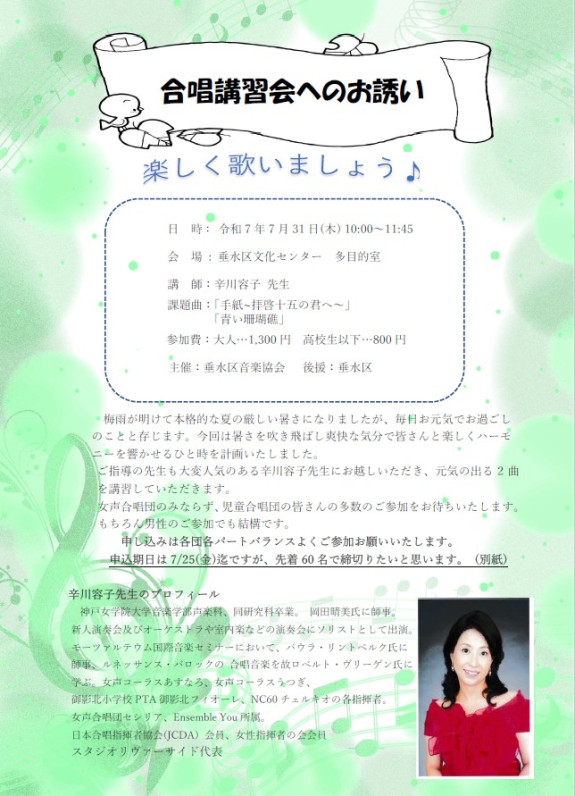 合唱講習会へのお誘い
楽しく歌いましょう♪
日　時： 令和7年7月31日(木) 10:00～11:45
会　場：垂水区文化センター　多目的室
講　師：辛川容子 先生
課題曲：「手紙~拝啓十五の君へ～」
「青い珊瑚礁」
参加費：大人…1,300円　高校生以下…800円
主催：垂水区音楽協会　後援：垂水区
梅雨が明けて本格的な夏の厳しい暑さになりましたが、毎日お元気でお過ごし
のことと存じます。今回は暑さを吹き飛ばし爽快な気分で皆さんと楽しくハーモ
ニーを響かせるひと時を計画いたしました。
ご指導の先生も大変人気のある辛川容子先生にお越しいただき、元気の出る2曲
を講習していただきます。
女声合唱団のみならず、児童合唱団の皆さんの多数のご参加をお待ちいたします。
もちろん男性のご参加でも結構です。
申し込みは各団各パートバランスよくご参加お願いいたします。
申込期日は7/25(金)迄ですが、先着60名で締切りたいと思います。（別紙）
辛川容子先生のプロフィール
神戸女学院大学音楽学部声楽科、同研究科卒業。 岡田晴美氏に師事。
新人演奏会及びオーケストラや室内楽などの演奏会にソリストとして出演。
モーツァルテウム国際音楽セミナーにおいて、パウラ・リントベルク氏に
師事。ルネッサンス・バロックの 合唱音楽を故ロベルト・ヴリーゲン氏に
学ぶ。女声コーラスあすなろ、女声コーラスうつぎ、
御影北小学校PTA御影北フィオーレ、NC60チェルキオの各指揮者。
女声合唱団セシリア、Ensemble You所属。
日本合唱指揮者協会(JCDA）会員、女性指揮者の会会員
スタジオリヴァーサイド代表